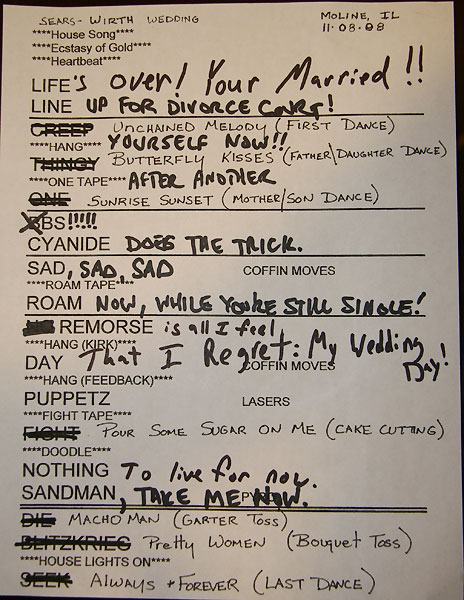 SEARS-WIRTH WEDDING MOLINE, IL
11.08.08
****House Song****
****Ecstasy of Gold****
****Heartbeat****
LIFE's over! Your Married!!
LINE UP FOR DIVORCE COURT!
CREEP UNCHAINED MELODY (FIRST DANCE)
****HANG**** YOURSELF NOW!!
THINGY BUTTERFLY KISSES (FATHER\DAUGHTER DANCE)
****ONE TAPE**** AFTER ANOTHER
ONE SUNRISE SUNSET (MOTHER/SON DANCE)
BS!!!!!
CYANIDE DOES THE TRICK.
SAD, SAD, SAD COFFIN MOVES
****ROAM TAPE****
ROAM NOW, WHILE YOU'RE STILL SINGLE!
REMORSE is all I feel
****HANG (KIRK)****
DAY That I Regret: My Wedding Day!
COFFIN MOVES
****HANG (FEEDBACK)****
PUPPETZ LASERS
****FIGHT TAPE****
FIGHT POUR SOME SUGAR ON ME (CAKE CUTTING)
****DOODLE****
NOTHING To live for now.
SANDMAN, TAKE ME NOW.
DIE MACHO MAN (GARTER TOSS)
BLITZKRIEG Pretty Women (Bouquet Toss)
****HOUSE LIGHTS ON****
SEEK ALWAYS + FOREVER (LAST DANCE)